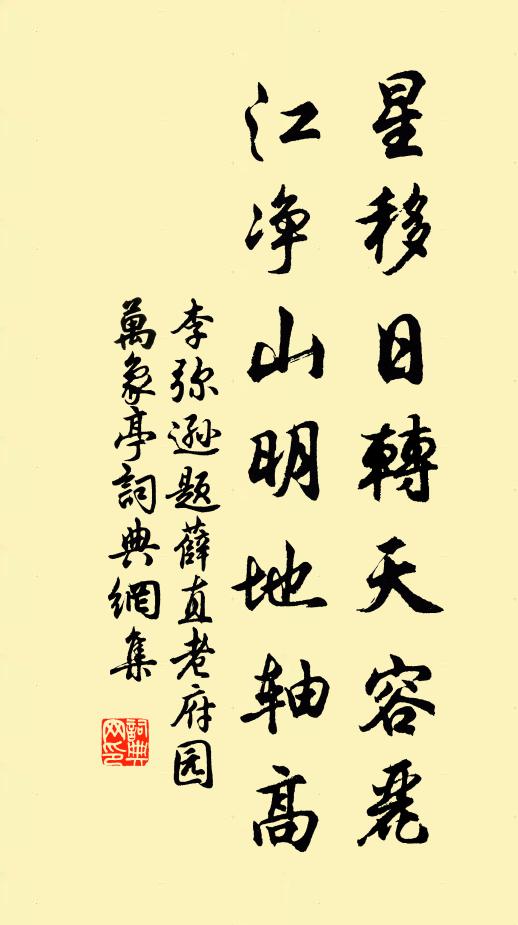 星移日轉天容麗
江净山明地轴高
李弥遜题薛直老府园
萬象亭詞典網集
詞典網印